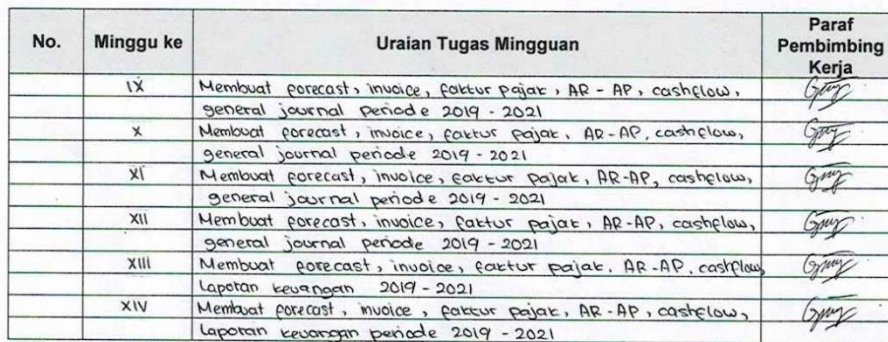 No. Minggu ke Uraian Tugas Mingguan Paraf Pembimbing Kerja
IX Membuat forecast, invoice, faktur pajak, AR - AP, cashflow,
general journal periode 2019 - 2021
X Membuat forecast, invoice, faktur pajak, AR-AP, cashflow,
general journal periode 2019 - 2021
XI Membuat forecast, invoice, faktur pajak, AR-AP, cashflow,
general journal periode 2019 - 2021
XII Membuat forecast, invoice, faktur pajak, AR-AP, cashflow,
general journal periode 2019 - 2021
XIII Membuat forecast, invoice, faktur pajak, AR-AP, cashflow,
laporan keuangan 2019 - 2021
XIV Membuat forecast, invoice, faktur pajak, AR-AP, cashflow,
laporan keuangan periode 2019 - 2021